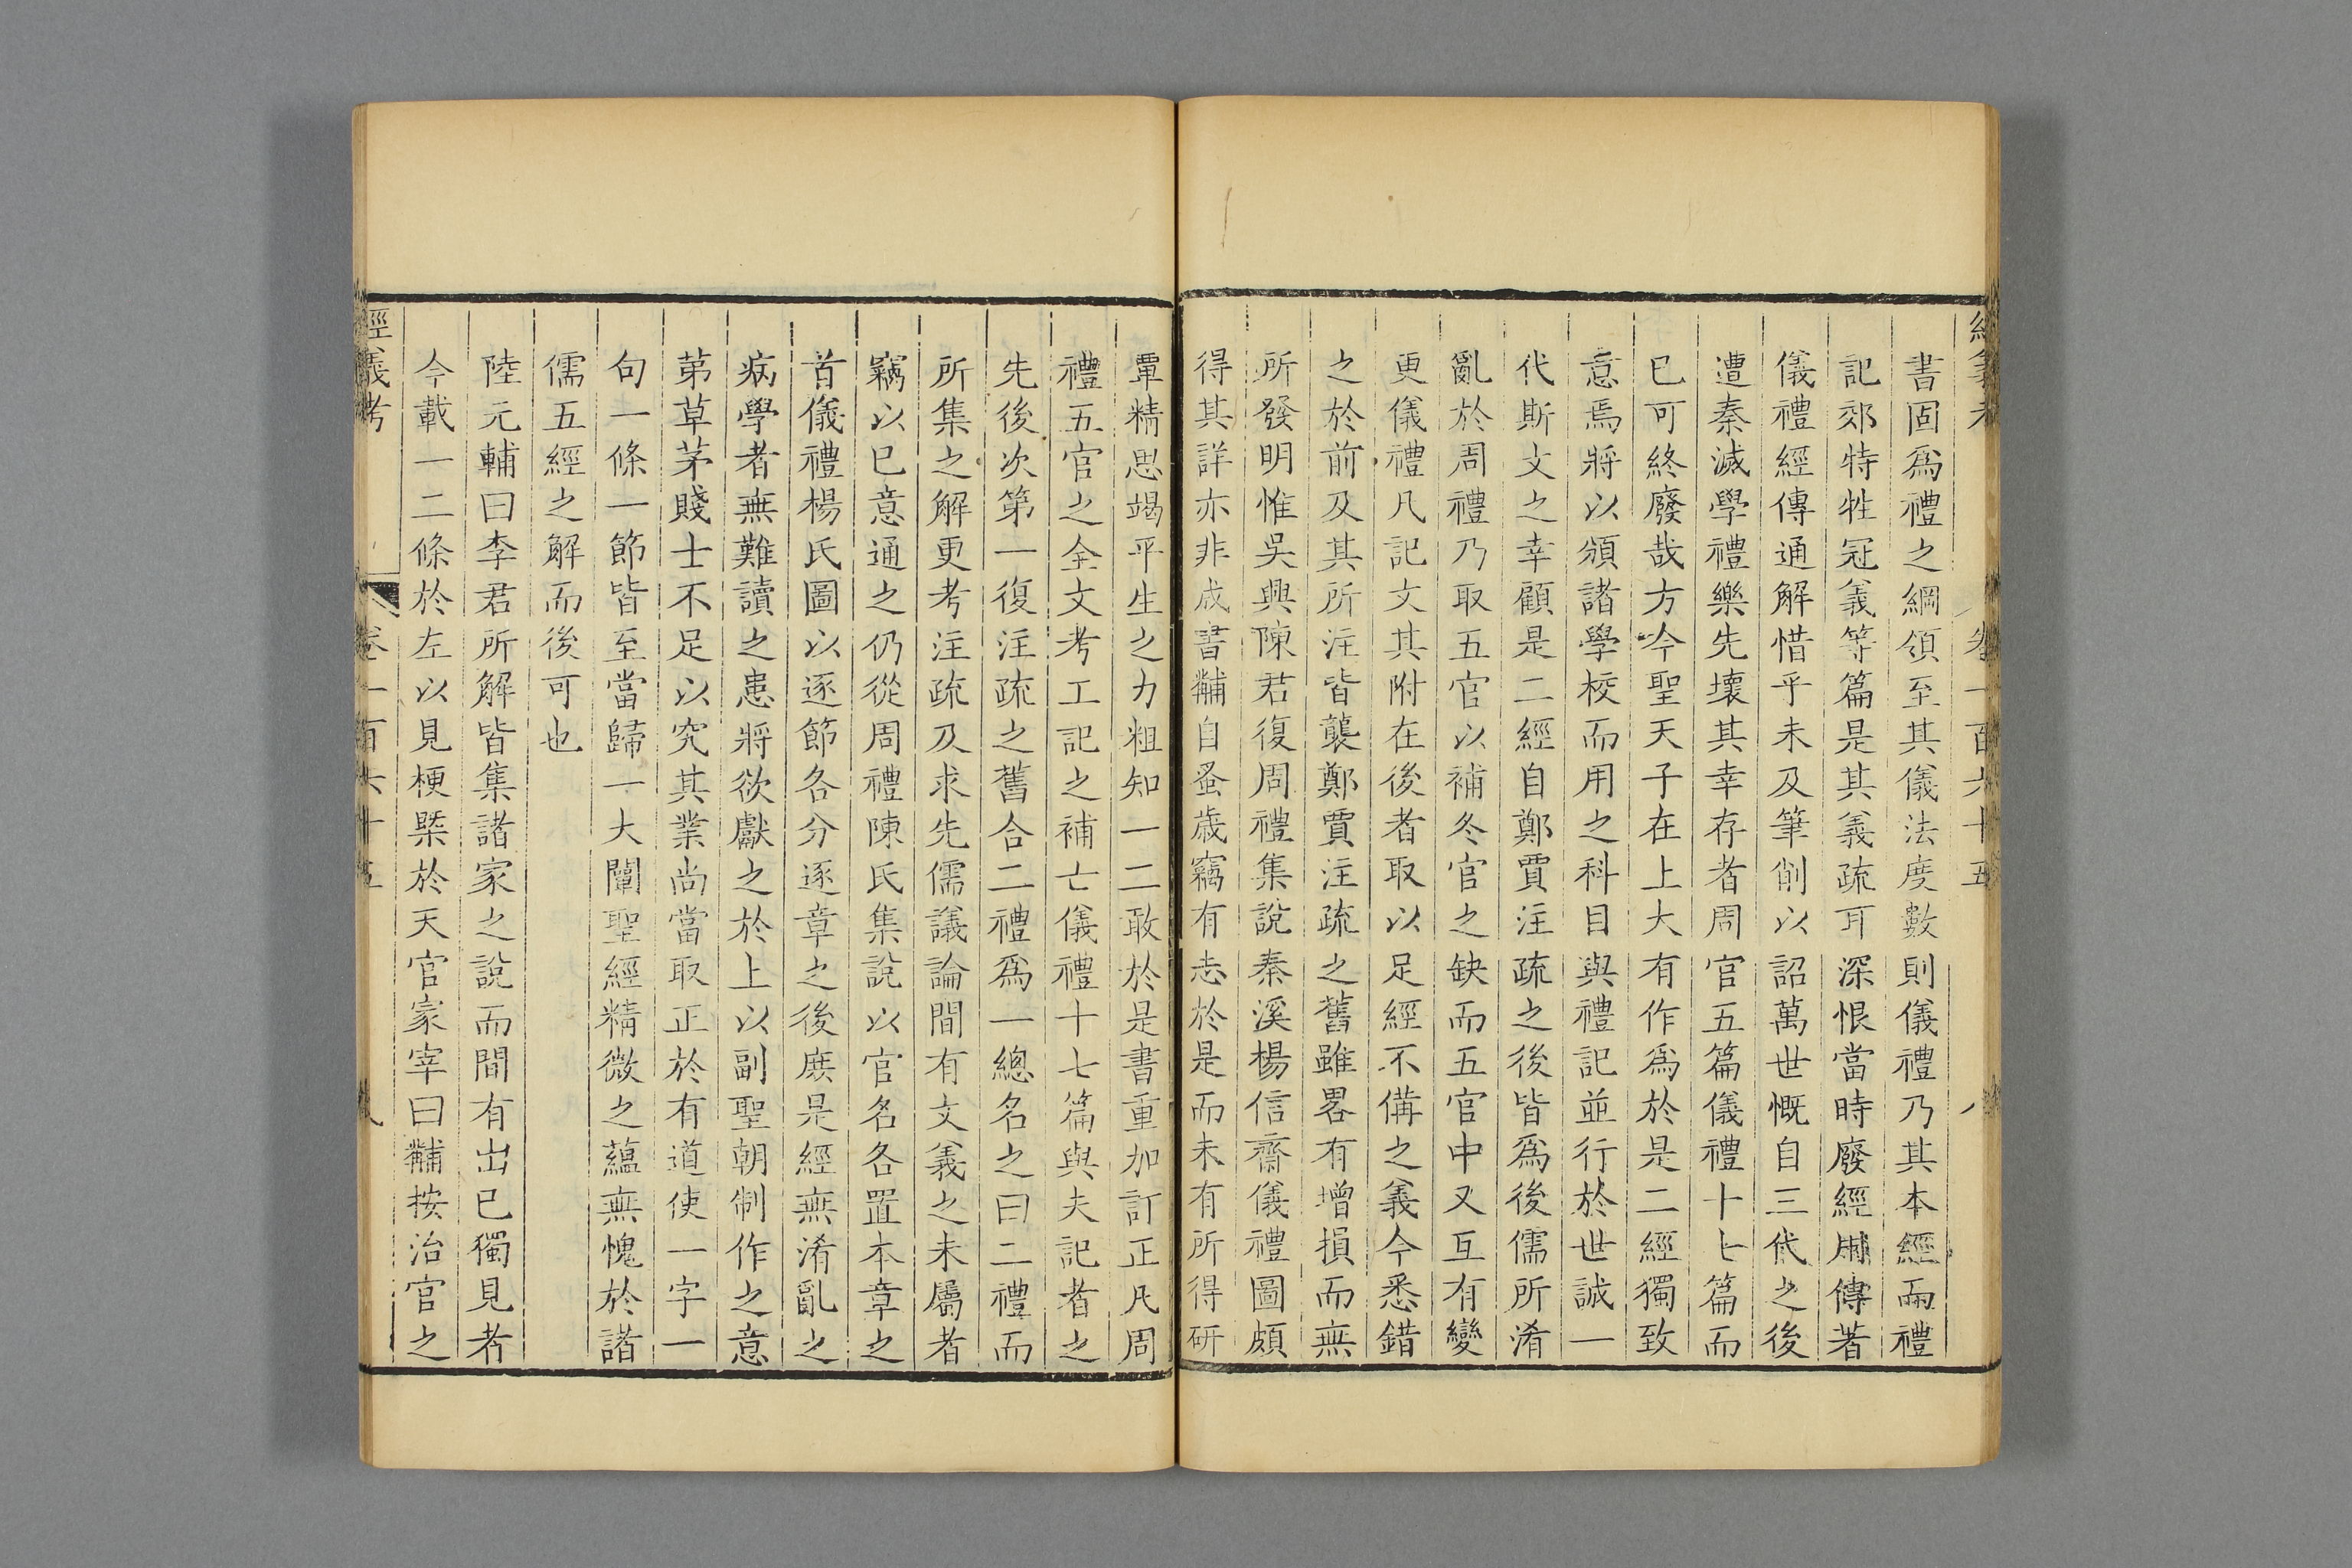 書固爲禮之綱領至其儀法度數則儀禮乃其本經而禮
記郊特牲冠義等篇是其義疏耳深恨當時廢經用傳著
儀禮經傳通解惜乎未及筆削以詔萬世慨自三代之後
遭秦滅學禮樂先壞其幸存者周官五篇儀禮十七篇而
已可終廢哉方今聖天子在上大有作爲於是二經獨致
意焉將以頒諸學校而用之科目與禮記並行於世誠一
代斯文之幸顧是二經自鄭賈注疏之後皆爲後儒所淆
亂於周禮乃取五官以補冬官之缺而五官中又互有變
更儀禮凡記文其附在後者取以足經不備之義今悉錯
之於前及其所注皆襲鄭賈注疏之舊雖畧有增損而無
所發明惟吳興陳君復周禮集說秦溪楊信齋儀禮圖頗
得其詳亦非成書黼自蚤歲竊有志於是而未有所得研
覃精思竭平生之力粗知一二敢於是書重加訂正凡周
禮五官之全文考工記之補亡儀禮十七篇與夫記者之
先後次第一復注疏之舊合二禮爲一總名之曰二禮而
所集之解更考注疏及求先儒議論間有文義之未屬者
竊以已意通之仍從周禮陳氏集說以官名各置本章之
首儀禮楊氏圖以逐節各分逐章之後庶是經無淆亂之
病學者無難讀之患將欲獻之於上以副聖朝制作之意
第草茅賤士不足以究其業尚當取正於有道使一字一
句一條一節皆至當歸一大闡聖經精微之蘊無愧於諸
儒五經之解而後可也
陸元輔曰李君所解皆集諸家之說而間有出已獨見者
今載一二條於左以見梗槩於天官冢宰曰黼按治官之
經義考 卷一百六十五 八